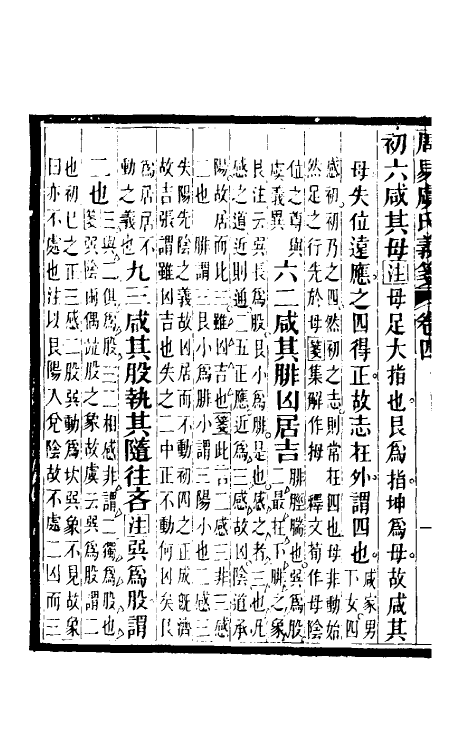 周易虞氏義箋 卷四 一
初六咸其母注母足大指也艮爲指坤爲母故咸其
母失位遠應之四得正故志在外謂四也
咸家男
下女四
感初初乃之四然初之志則常在四也母非動始
然足之行先於母箋集解作拇 釋文荀作母陰
位之尊與
虞義異
六二咸其腓凶居吉
腓脛腨也巽爲股
二最在下腓之象
艮注云巽長爲股艮小爲腓是也感之者三也凡
感之道近則通二五正應近爲三感故凶陰道承
陽故居而此三雖凶吉也箋此言二感三非三感
二也 腓謂三艮小爲腓小謂三陽小也二感三
失陽先陰之義故凶居吉也而不動初四之正成既濟
故吉張謂雖凶吉也失之二中正不動何凶矣艮
爲居居不
動之義也
九三咸其股執其隨往吝注巽爲股謂
二也
三與二俱爲股三二相感非謂二獨爲股也
箋巽陰兩偶疏股之象故虞云巽爲股謂二
也初巳之正三感二股巽動爲坎巽象不見故象
曰亦不處也注以艮陽入兌陰故不處二凶而三